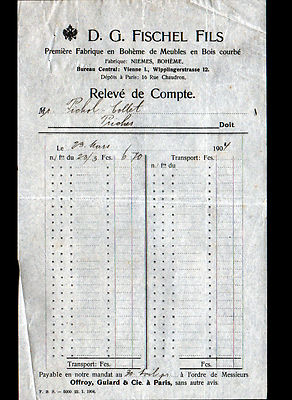 D. G. FISCHEL FILS
Première Fabrique en Bohème de Meubles en Bois courbé
Fabrique: NIEMES, BOHÊME.
Bureau Central: Vienne I., Wipplingerstrasse 12.
Dépôts à Paris: 16 Rue Chaudron.
Relevé de Compte.
Mr.
Doit
Le 23 Mars 1904
n./ ffre du 23/3 Fcs. 6 70 Transport: Fcs.
Transport: Fcs.
Payable en notre mandat au 30 à l'ordre de Messieurs
Offroy, Guiard & Cie. à Paris, sans autre avis.
F. B S. — 5000 22. 1. 1904.